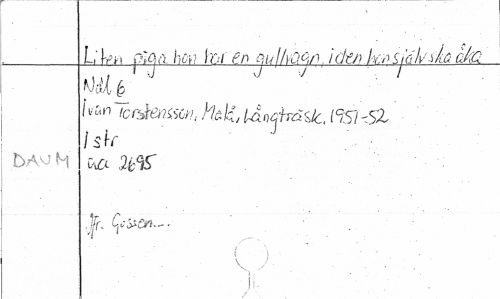 Liten piga hon har en gullvagn, i den hon själv ska åka
Nål 6
Ivan Torstensson, Malå, Långträsk, 1951-52
1 str
DAUM aa 2695
Jfr. Gossen....